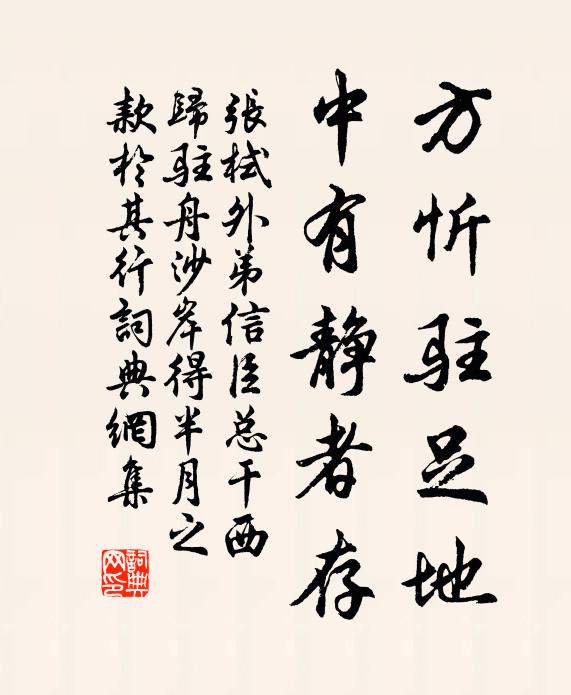 方忻駐足地
中有静者存
張栻外弟信臣总干西
歸駐舟沙岸得半月之
款於其行詞典網集
詞典网印